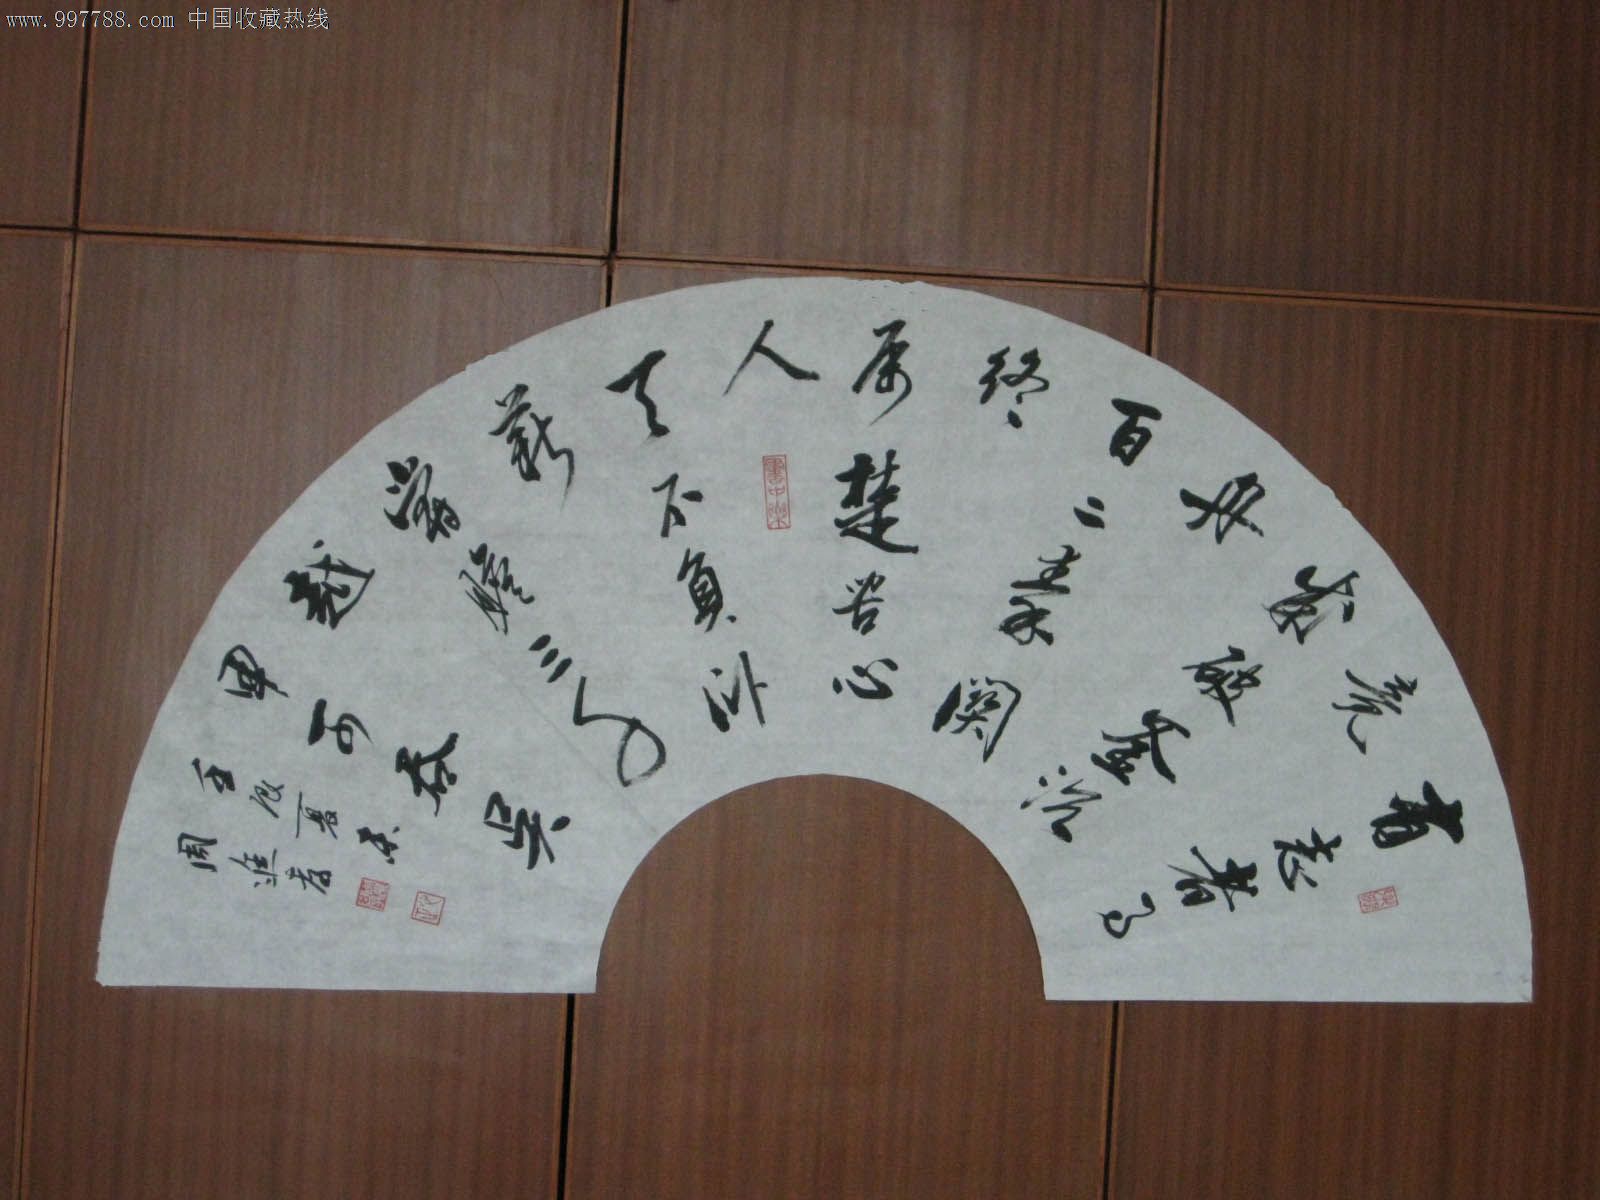 www.997788.com 中国收藏热线
有志者事
竟
成破釜沉
舟
百二秦関
终
属楚苦心
人
天不負卧
薪
嘗膽三千
越
甲可吞吴
壬辰夏
周進
書中樂